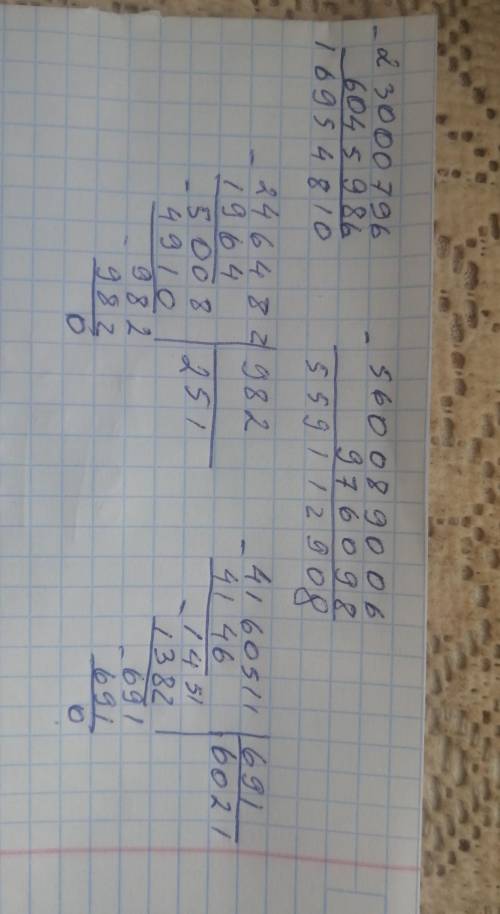 - 23000796
6045986
16954810
- 560089006
976098
559112908
- 246482 982
1964 251
- 5008
4910
- 982
982
0
- 4160511 691
4146 6021
- 1451
1382
- 691
691
0